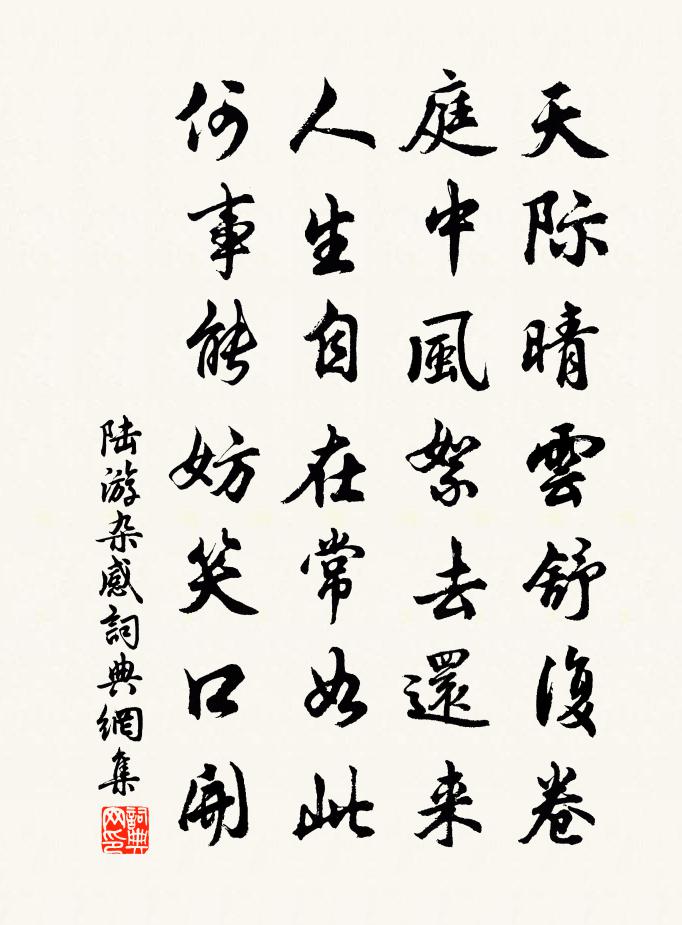 天际晴雲舒復卷
庭中風絮去還来
人生自在常如此
何事能妨笑口開
陆游杂感詞典網集
詞典网印